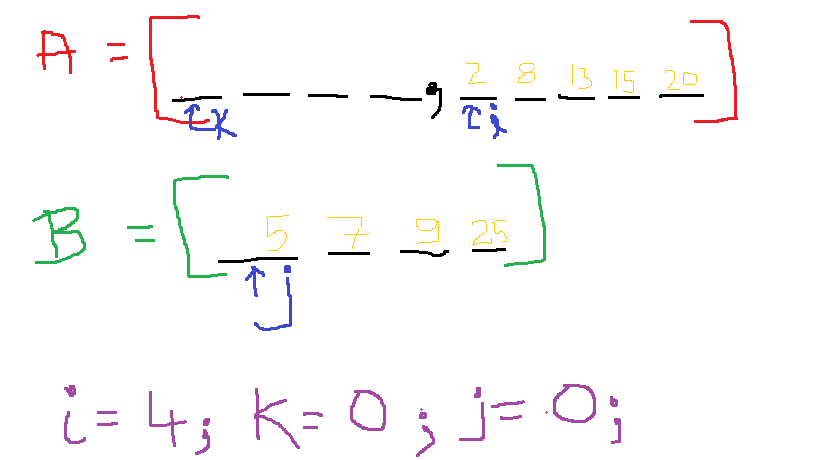 A = [ _ _ _ _ , 2 8 13 15 20 ]
k i
B = [ 5 7 9 25 ]
j
i = 4; K = 0; j = 0;